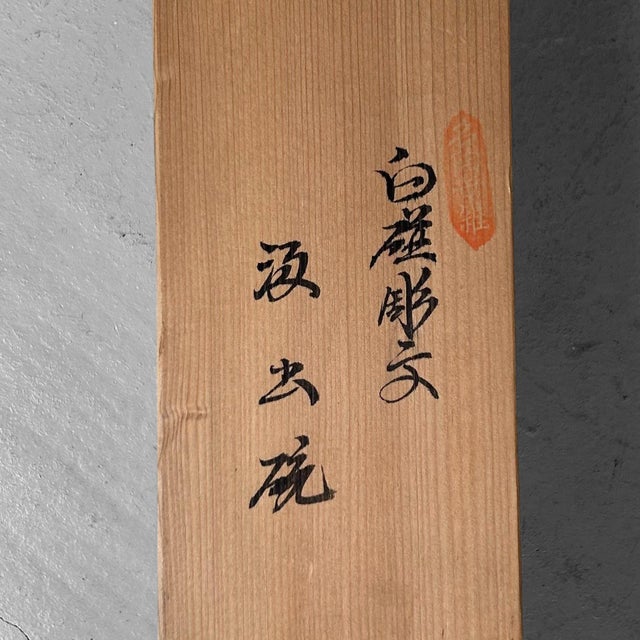 白磁彫文
汲出碗